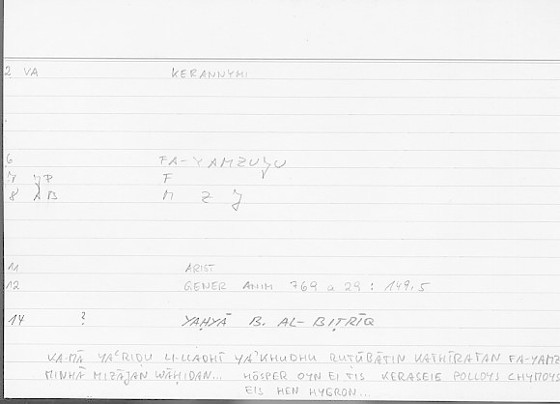 2 VA KERANNYMI
6 FA-YAMZUǦU
7 P F
8 B M Z Ǧ
11 ARIST
12 GENER ANIM 769 a 29 : 149,5
14 ? YAḤYĀ B. AL-BIṬRĪQ
KA-MĀ YAʿRIḌU LI-LLADHĪ YAʾKHUDHU RUṬŪBĀTIN KATHĪRATAN FA-YAMZ
MINHĀ MIZĀJAN WĀḤIDAN... HŌSPER OYN EI TIS KERASEIE POLLOYS CHYMOYS
EIS HEN HYGRON...